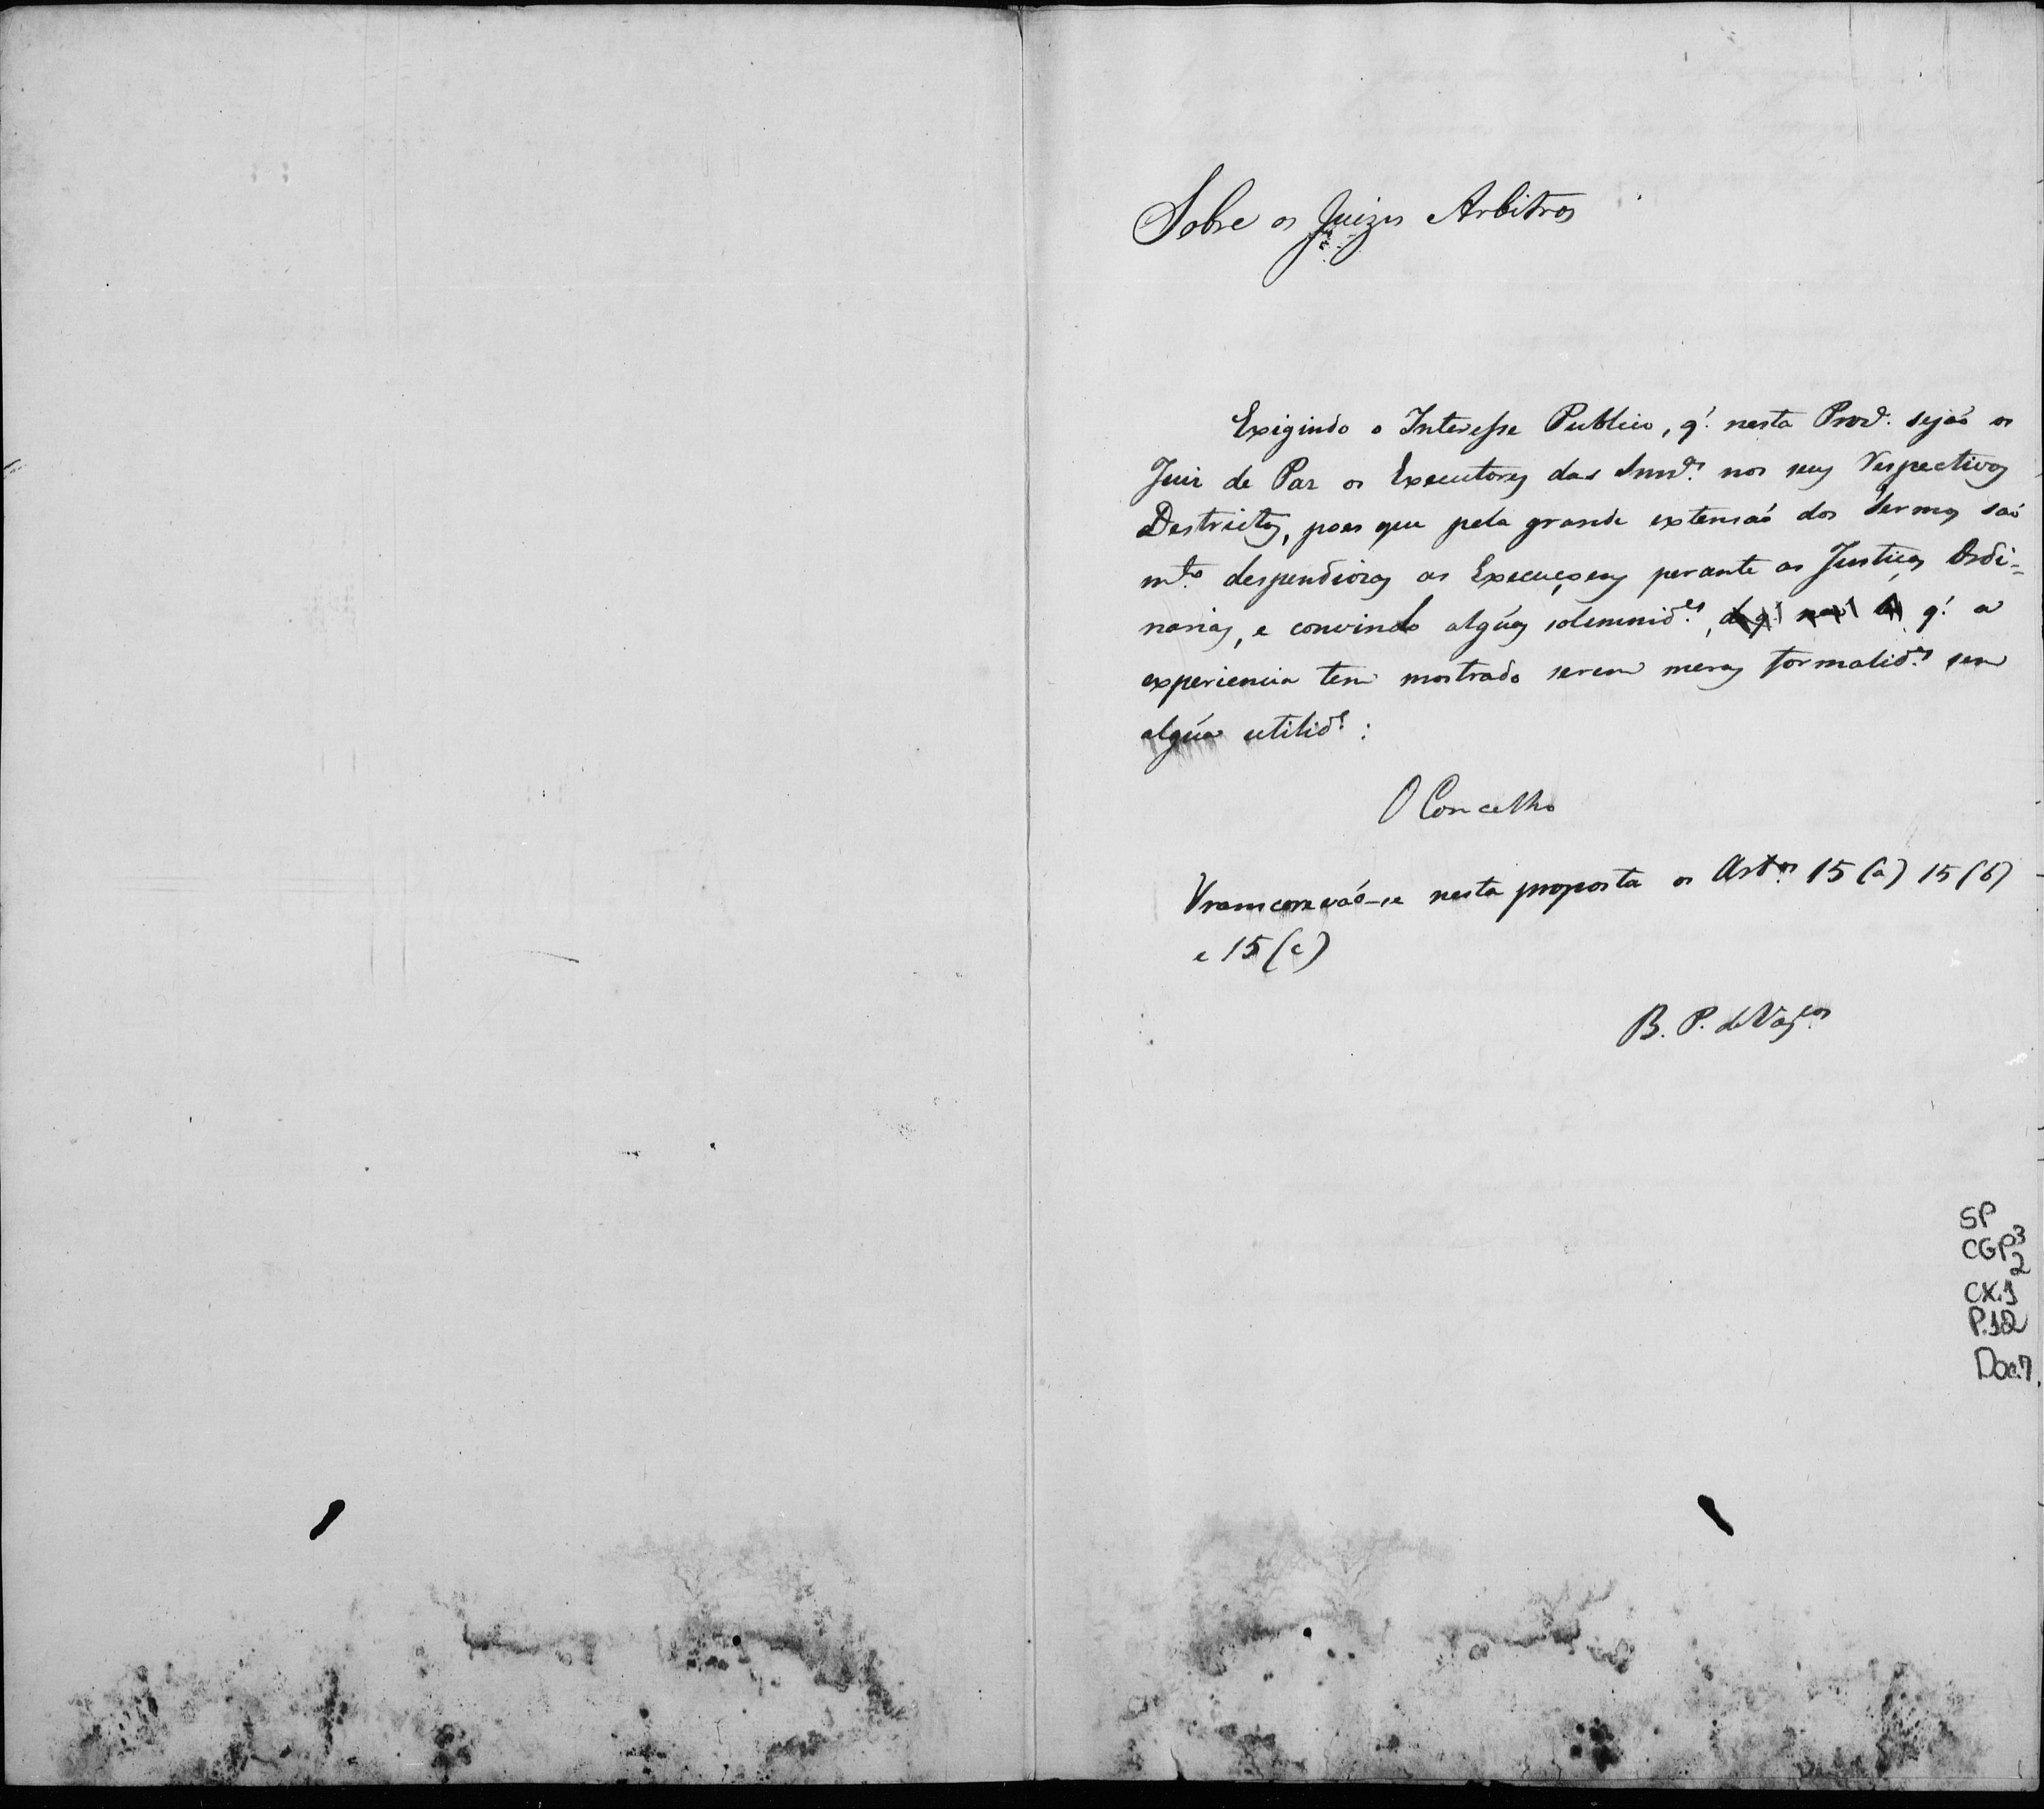 Sobre os Juizes Arbitros
Exigindo o Interesse Publico, q.' nesta Prov.ª sejaõ os
Juiz de Paz os Executores das Senn.ças nos seus respectivos
Destrictos, pois que pela grande extensaõ dos Termos saõ
m.to despendiozas as Execuçoens perante as Justiças Ordi=
narias, e convindo algũas solemnid.es, q.' a
experiencia tem mostrado serem meras formalid.es sem
algũa utilid.e:
O Concelho
Transcrevaõ-se nesta proposta os Art.os 15 (a) 15 (b)
e 15 (c)
B. P. de Vas.cos
SP
CGP3
2
CX.1
P.12
Doc.7.